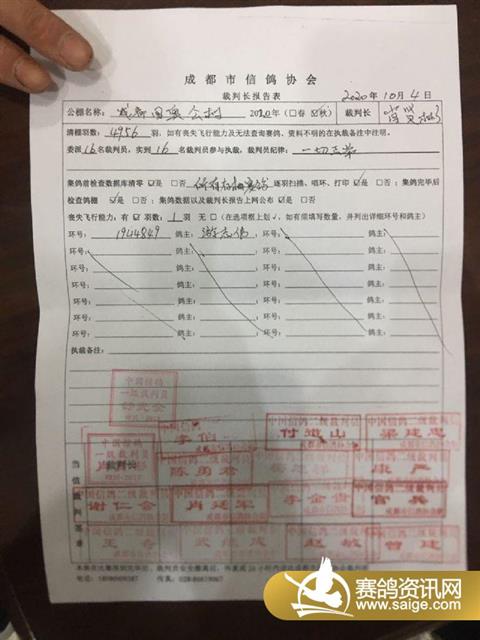 成都市信鸽协会
裁判长报告表
2020年10月4日
公棚名称: 成都国奥公棚 2020年(□春 ☑秋) 裁判长
清棚羽数: 4956 羽. 如有丧失飞行能力及无法查询赛鸽、资料不明的在执裁备注中注明.
委派 16 名裁判员, 实到 16 名裁判员参与执裁, 裁判员纪律: 一切正常
集鸽前检查数据库清零 ☑是 □否 逐羽扫描、唱环、打印 ☑是 □否; 集鸽完毕后
检查鸽棚 ☑是 □否; 集鸽数据以及裁判长报告上网公布 ☑是 □否
丧失飞行能力: 有 ☑ 羽数: 1 羽 无 □ (在选项框上划√, 如有须填写数量, 并列出详细环号和鸽主)
环号: 1944849 鸽主: 游志伟 环号: 鸽主:
环号: 鸽主: 环号: 鸽主:
环号: 鸽主: 环号: 鸽主:
环号: 鸽主: 环号: 鸽主:
环号: 鸽主: 环号: 鸽主:
环号: 鸽主: 环号: 鸽主:
环号: 鸽主: 环号: 鸽主:
执裁备注:
中国信鸽
一级裁判员
中国信鸽二级裁判员
李伯
中国信鸽二级裁判员
付道山
中国信鸽二级裁判员
梁建忠
当值裁判签章
裁判长
中国信鸽
一级裁判员
陈勇君
康严
中国信鸽二级裁判员
谢仁金
中国信鸽二级裁判员
肖廷军
李金贵
官兵
王奇
赵敏
曾建
赛鸽资讯网
www.saige.com